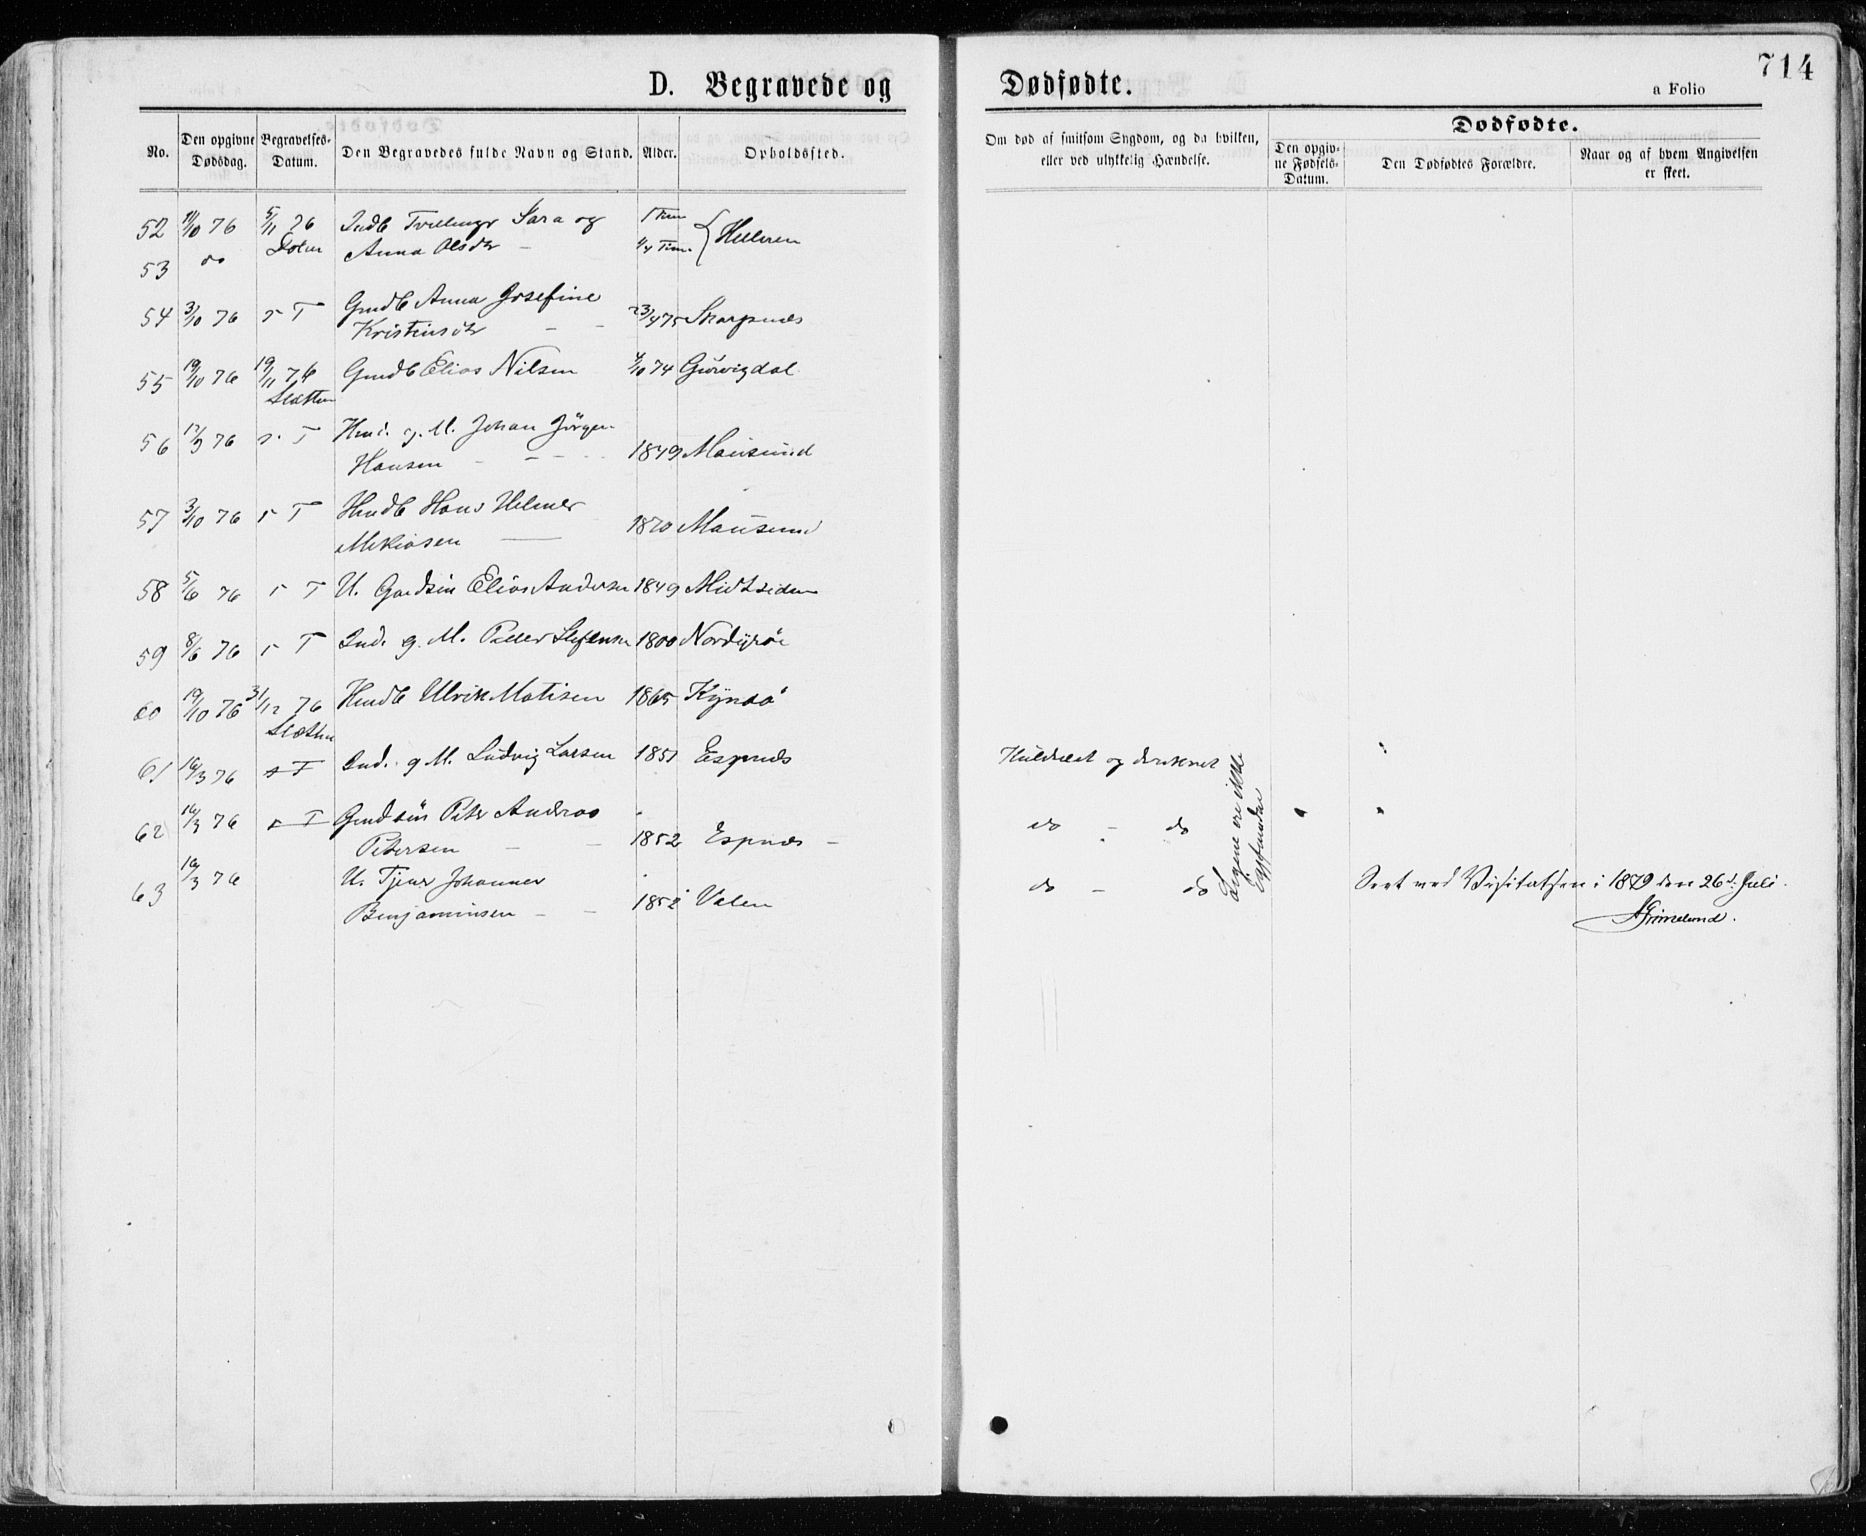 714
D. Begravede og Dødfødte.
a Folio
No. Den opgivne Dødsdag. Begravelses-Datum. Den Begravedes fulde Navn og Stand. Alder. Opholdssted.
Om død af smitsom Sygdom, og da hvilken, eller ved ulykkelig Hændelse.
Dødfødte.
Den opgivne Fødsels-Datum. Den Dødfødtes Forældre. Naar og af hvem Angivelsen er skeet.
52 11/10 76 5/11 76 Indb Tvillinger Sara og 1 Time
53 do Dolm Anna Olsdtr - 1/4 Tim. Helleren
54 3/10 76 s T Gmdb Anna Josefine
Kristinsdtr - - 23/4 75 Skarpnæs
55 19/10 76 19/11 76 Gmdb Elias Nilsen 4/10 74 Gurvigdal
Sletten
56 17/9 76 s T Hmd. g. M. Johan Jörgen
Hansen - - - - 1849 Mausund
57 3/10 76 s T Hmdb Hans Helmer
Mekiasen 1870 Mausund
58 5/6 76 s T U. Gaardsön Elias Andersen 1849 Midtsiden
59 8/6 76 s T Ind. g. M. Peder Steffensen 1800 Nordyröe
60 19/10 76 31/12 76 Hmdb Ulrik Matisen 1865 Kynsö
Sletten
61 16/3 76 s T Ind. g M. Ludvig Larsen 1851 Espnæs Kuldseilet og druknet
62 16/3 76 s T Gmdsön Peter Andreas
Petersen - - 1852 Espnæs - do - do
63 16/3 76 U. Tjener Johannes
Benjaminsen - - 1852 Valen do - do
Ligene ere ikke
opfundne
Seet ved Visitatsen i 1879 den 26de Juli.
A Grimelund.